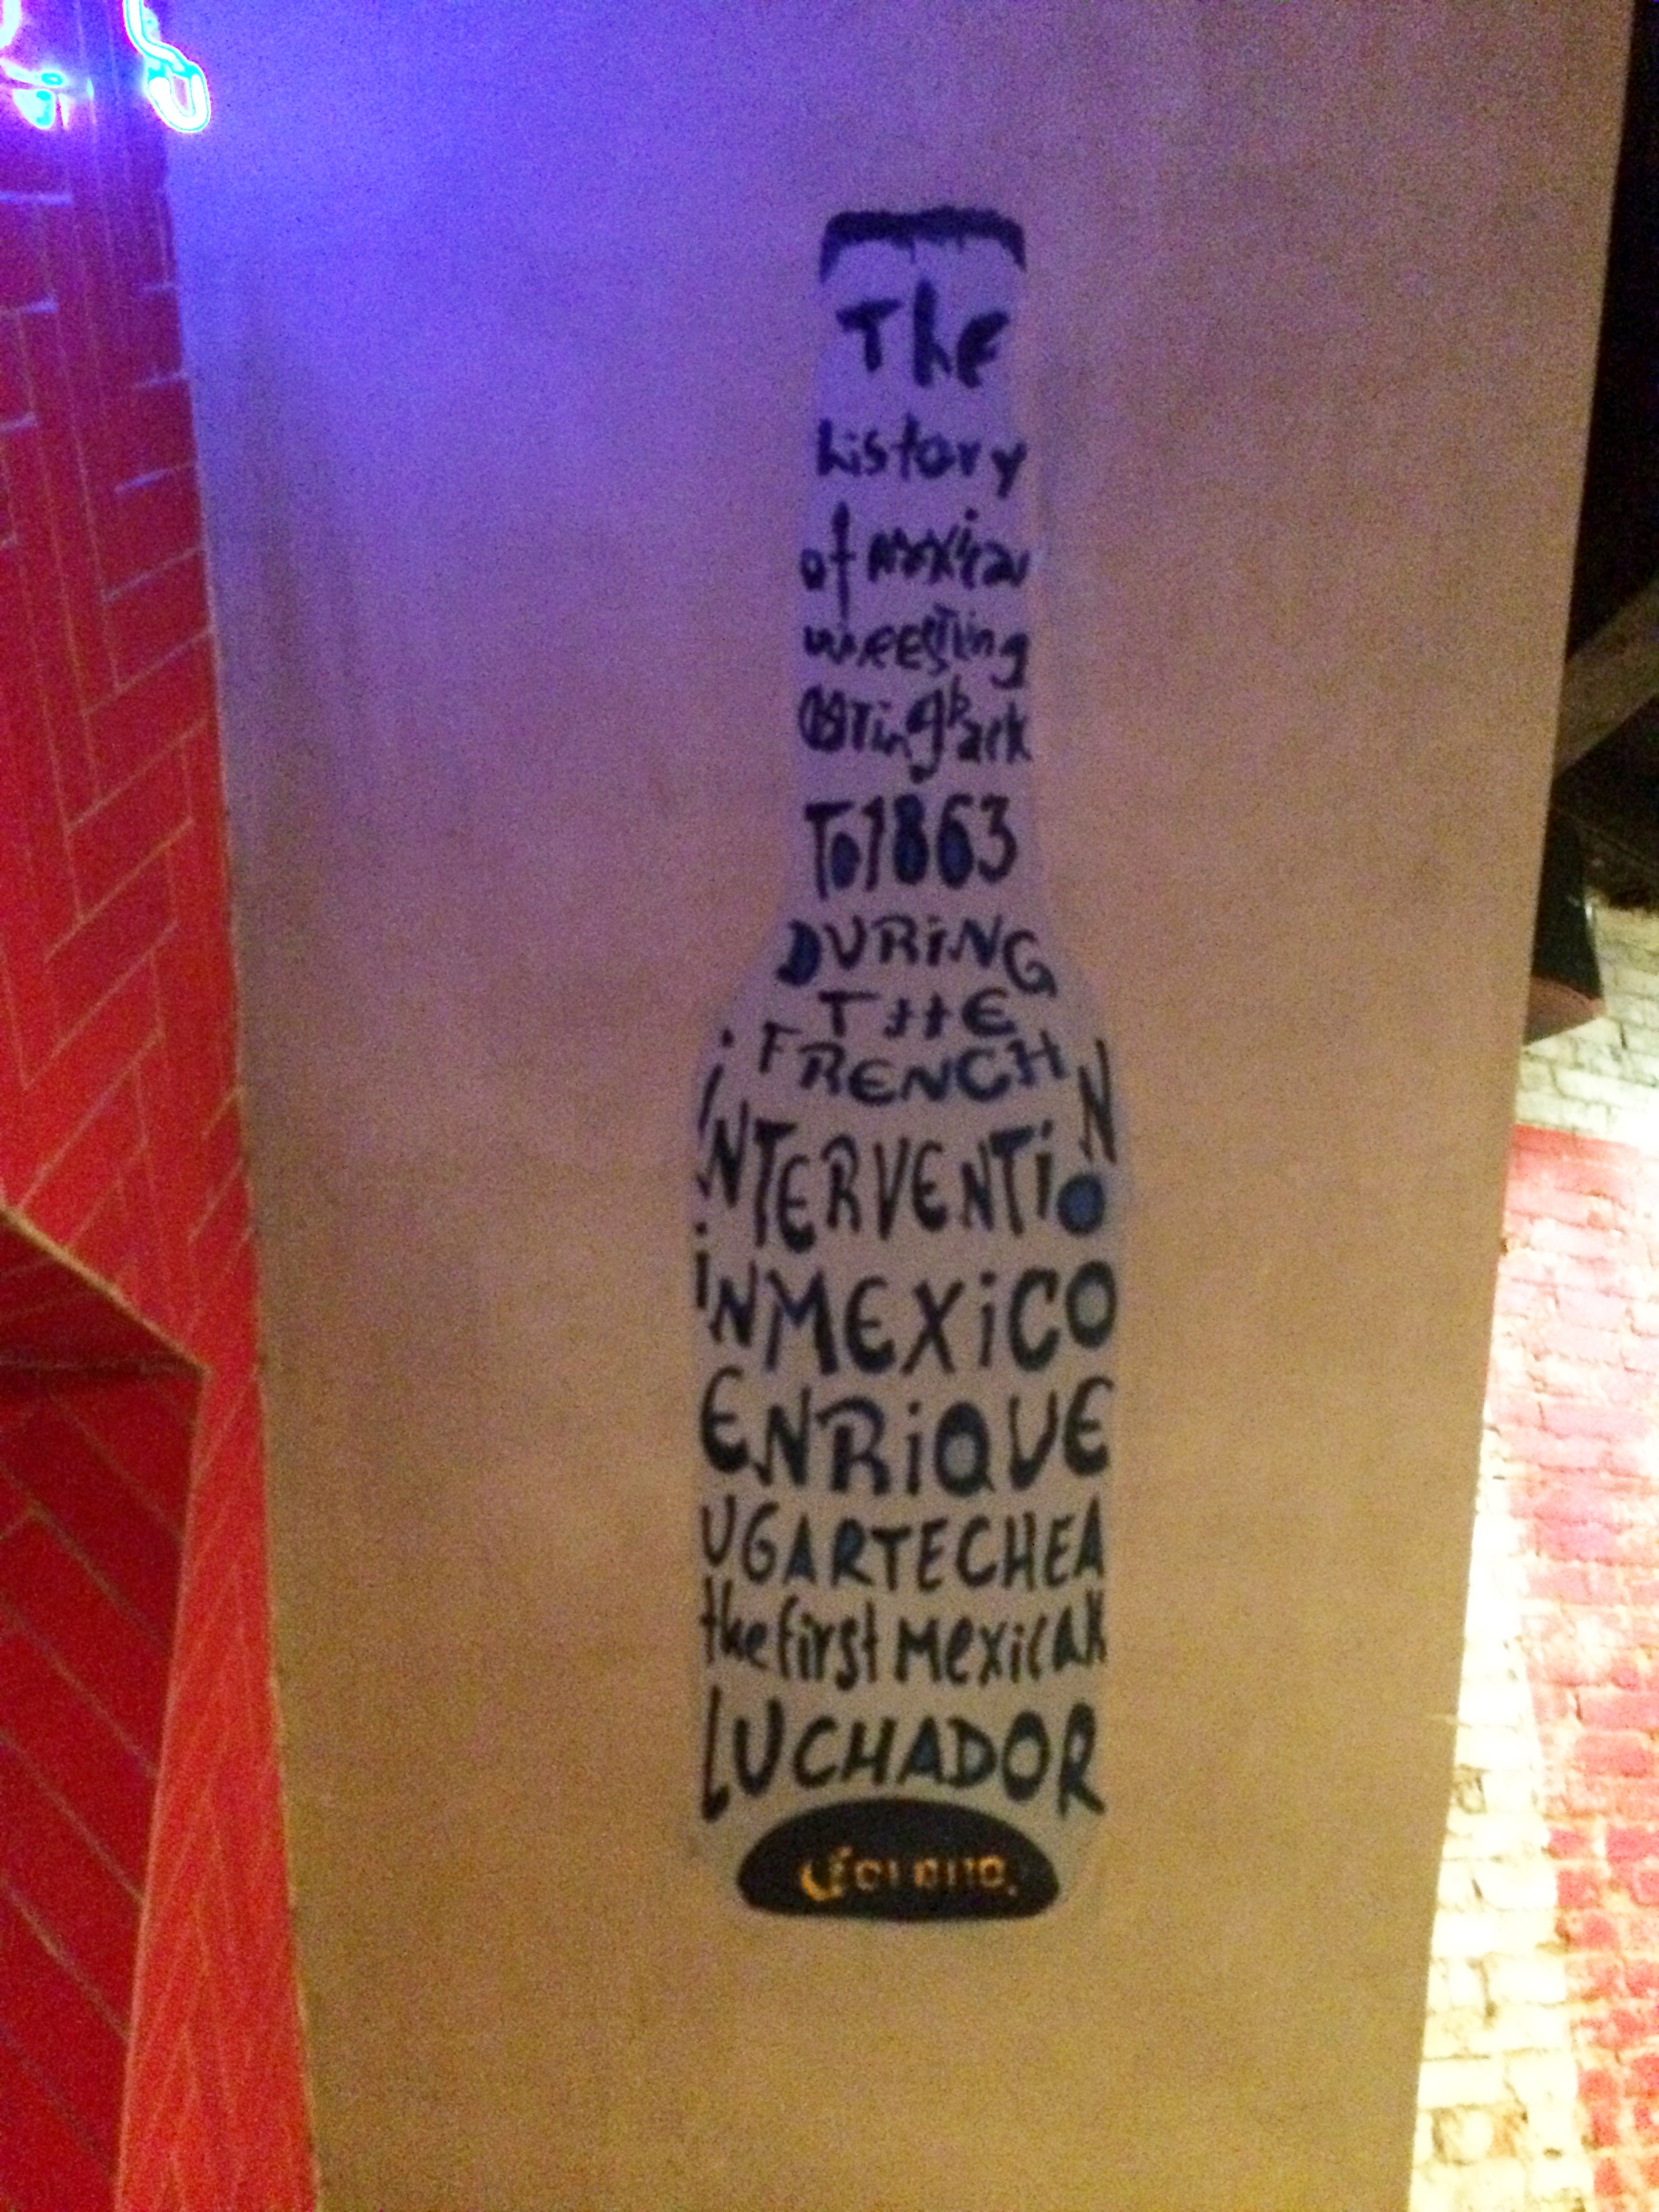 The
history
of mexican
wreestling
dating back
To 1863
DURiNG
THE
FRENCH
iNTERVENTiON
iN MEXiCO
ENRiQUE
UGARTECHEA
the first Mexican
LUCHADOR
Corona